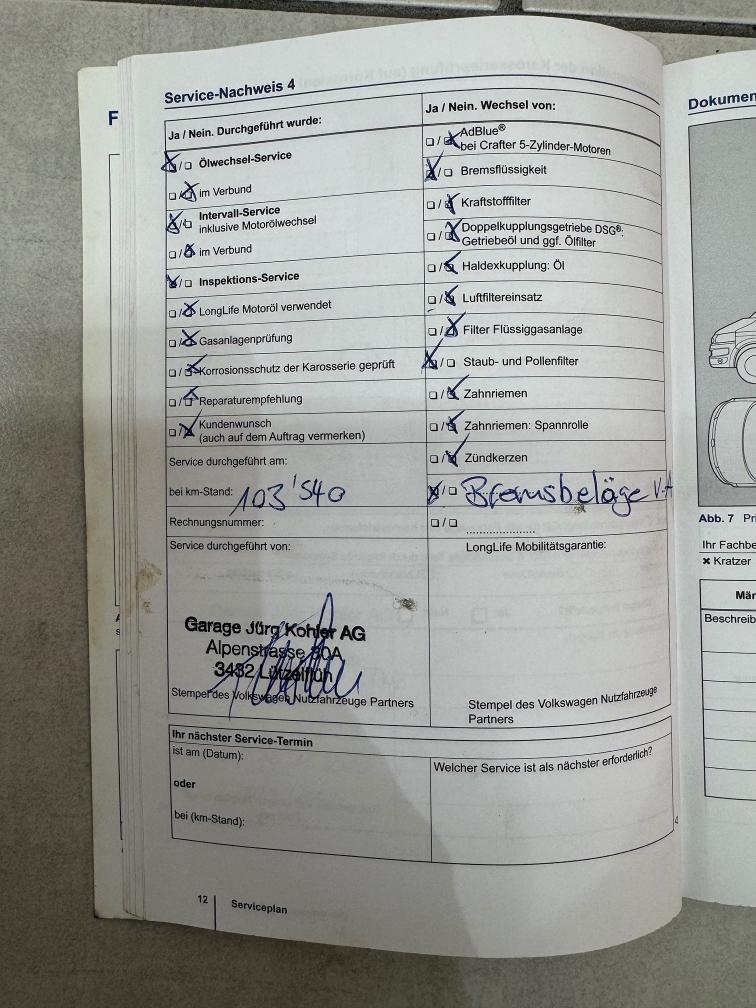 Service-Nachweis 4
Ja / Nein. Durchgeführt wurde:
☒/☐ Ölwechsel-Service
☐/☒ im Verbund
☒/☐ Intervall-Service
inklusive Motorölwechsel
☐/☒ im Verbund
☒/☐ Inspektions-Service
☐/☒ LongLife Motoröl verwendet
☐/☒ Gasanlagenprüfung
☐/☒ Korrosionsschutz der Karosserie geprüft
☐/☒ Reparaturempfehlung
☐/☒ Kundenwunsch
(auch auf dem Auftrag vermerken)
Service durchgeführt am:
bei km-Stand: 103'540
Rechnungsnummer:
Service durchgeführt von:
Garage Jürg Kohler AG
Alpenstrasse 30A
3432 Lützelflüh
Stempel des Volkswagen Nutzfahrzeuge Partners
Ja / Nein. Wechsel von:
☐/☒ AdBlue®
bei Crafter 5-Zylinder-Motoren
☒/☐ Bremsflüssigkeit
☐/☒ Kraftstofffilter
☐/☒ Doppelkupplungsgetriebe DSG®:
Getriebeöl und ggf. Ölfilter
☐/☒ Haldexkupplung: Öl
☐/☒ Luftfiltereinsatz
☐/☒ Filter Flüssiggasanlage
☒/☐ Staub- und Pollenfilter
☐/☒ Zahnriemen
☐/☒ Zahnriemen: Spannrolle
☐/☒ Zündkerzen
☒/☐ Bremsbeläge V.A
☐/☐
LongLife Mobilitätsgarantie:
Stempel des Volkswagen Nutzfahrzeuge
Partners
Ihr nächster Service-Termin
ist am (Datum):
oder
bei (km-Stand):
Welcher Service ist als nächster erforderlich?
12
Serviceplan
F
Dokumen
Abb. 7 Pri
Ihr Fachbe
× Kratzer
Mär
Beschreib